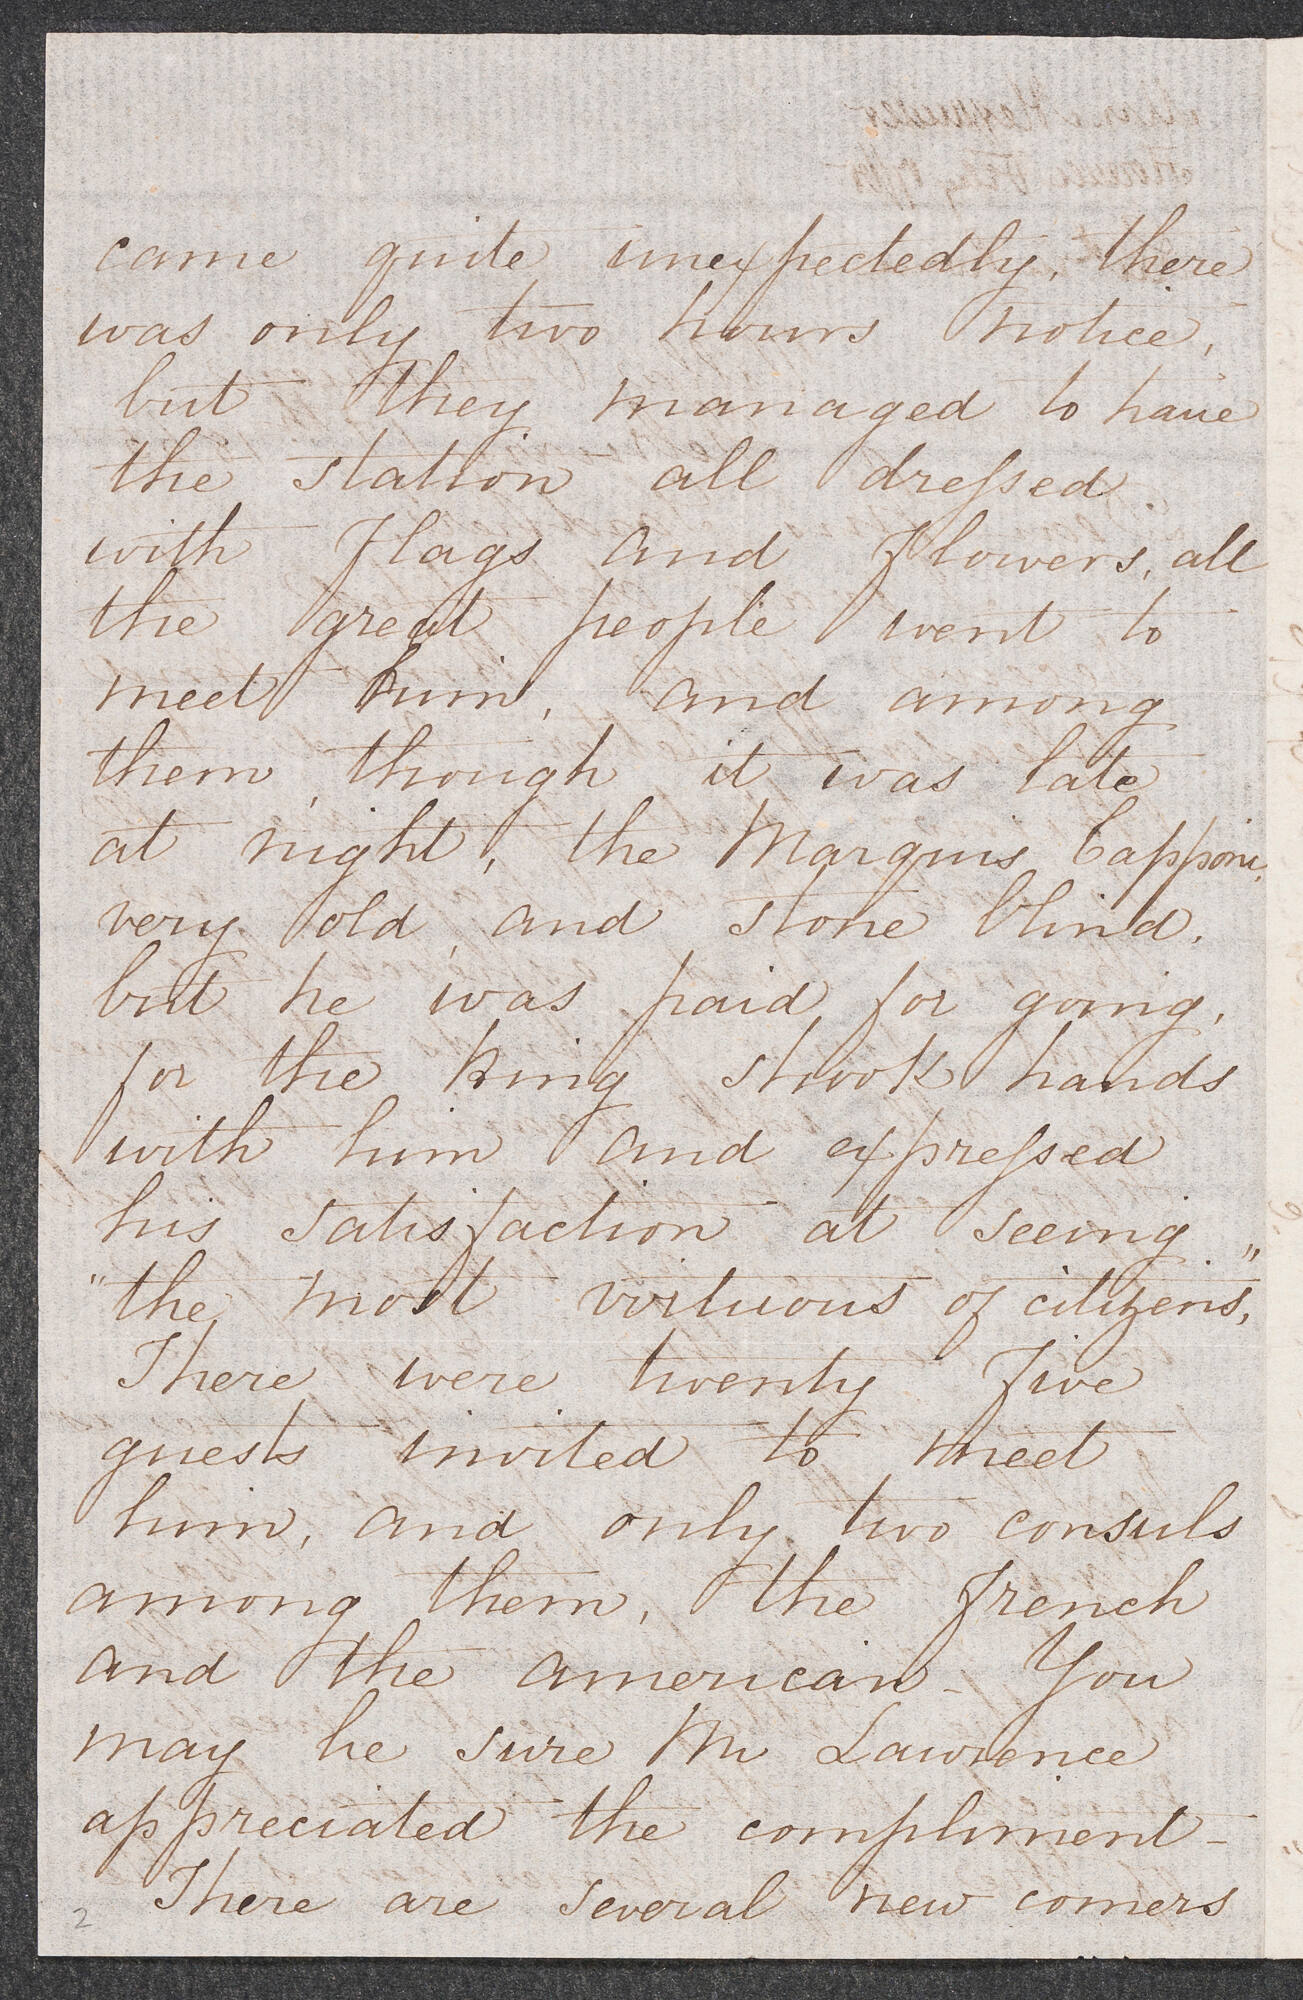 came quite unexpectedly, there
was only two hours notice,
but they managed to have
the station all dressed
with Flags and Flowers, all
the great people went to
meet him, and among
them, though it was late
at night, the Marquis Capponi,
very old, and stone blind,
but he was paid for going,
for the King shook hands
with him and expressed
his satisfaction at seeing
"the most virtuous of citizens,"
There were twenty Five
guests invited to meet
him, and only two consuls
among them, the French
and the american - You
may be sure Mr Lawrence
appreciated the compliment -
There are several new comers
2